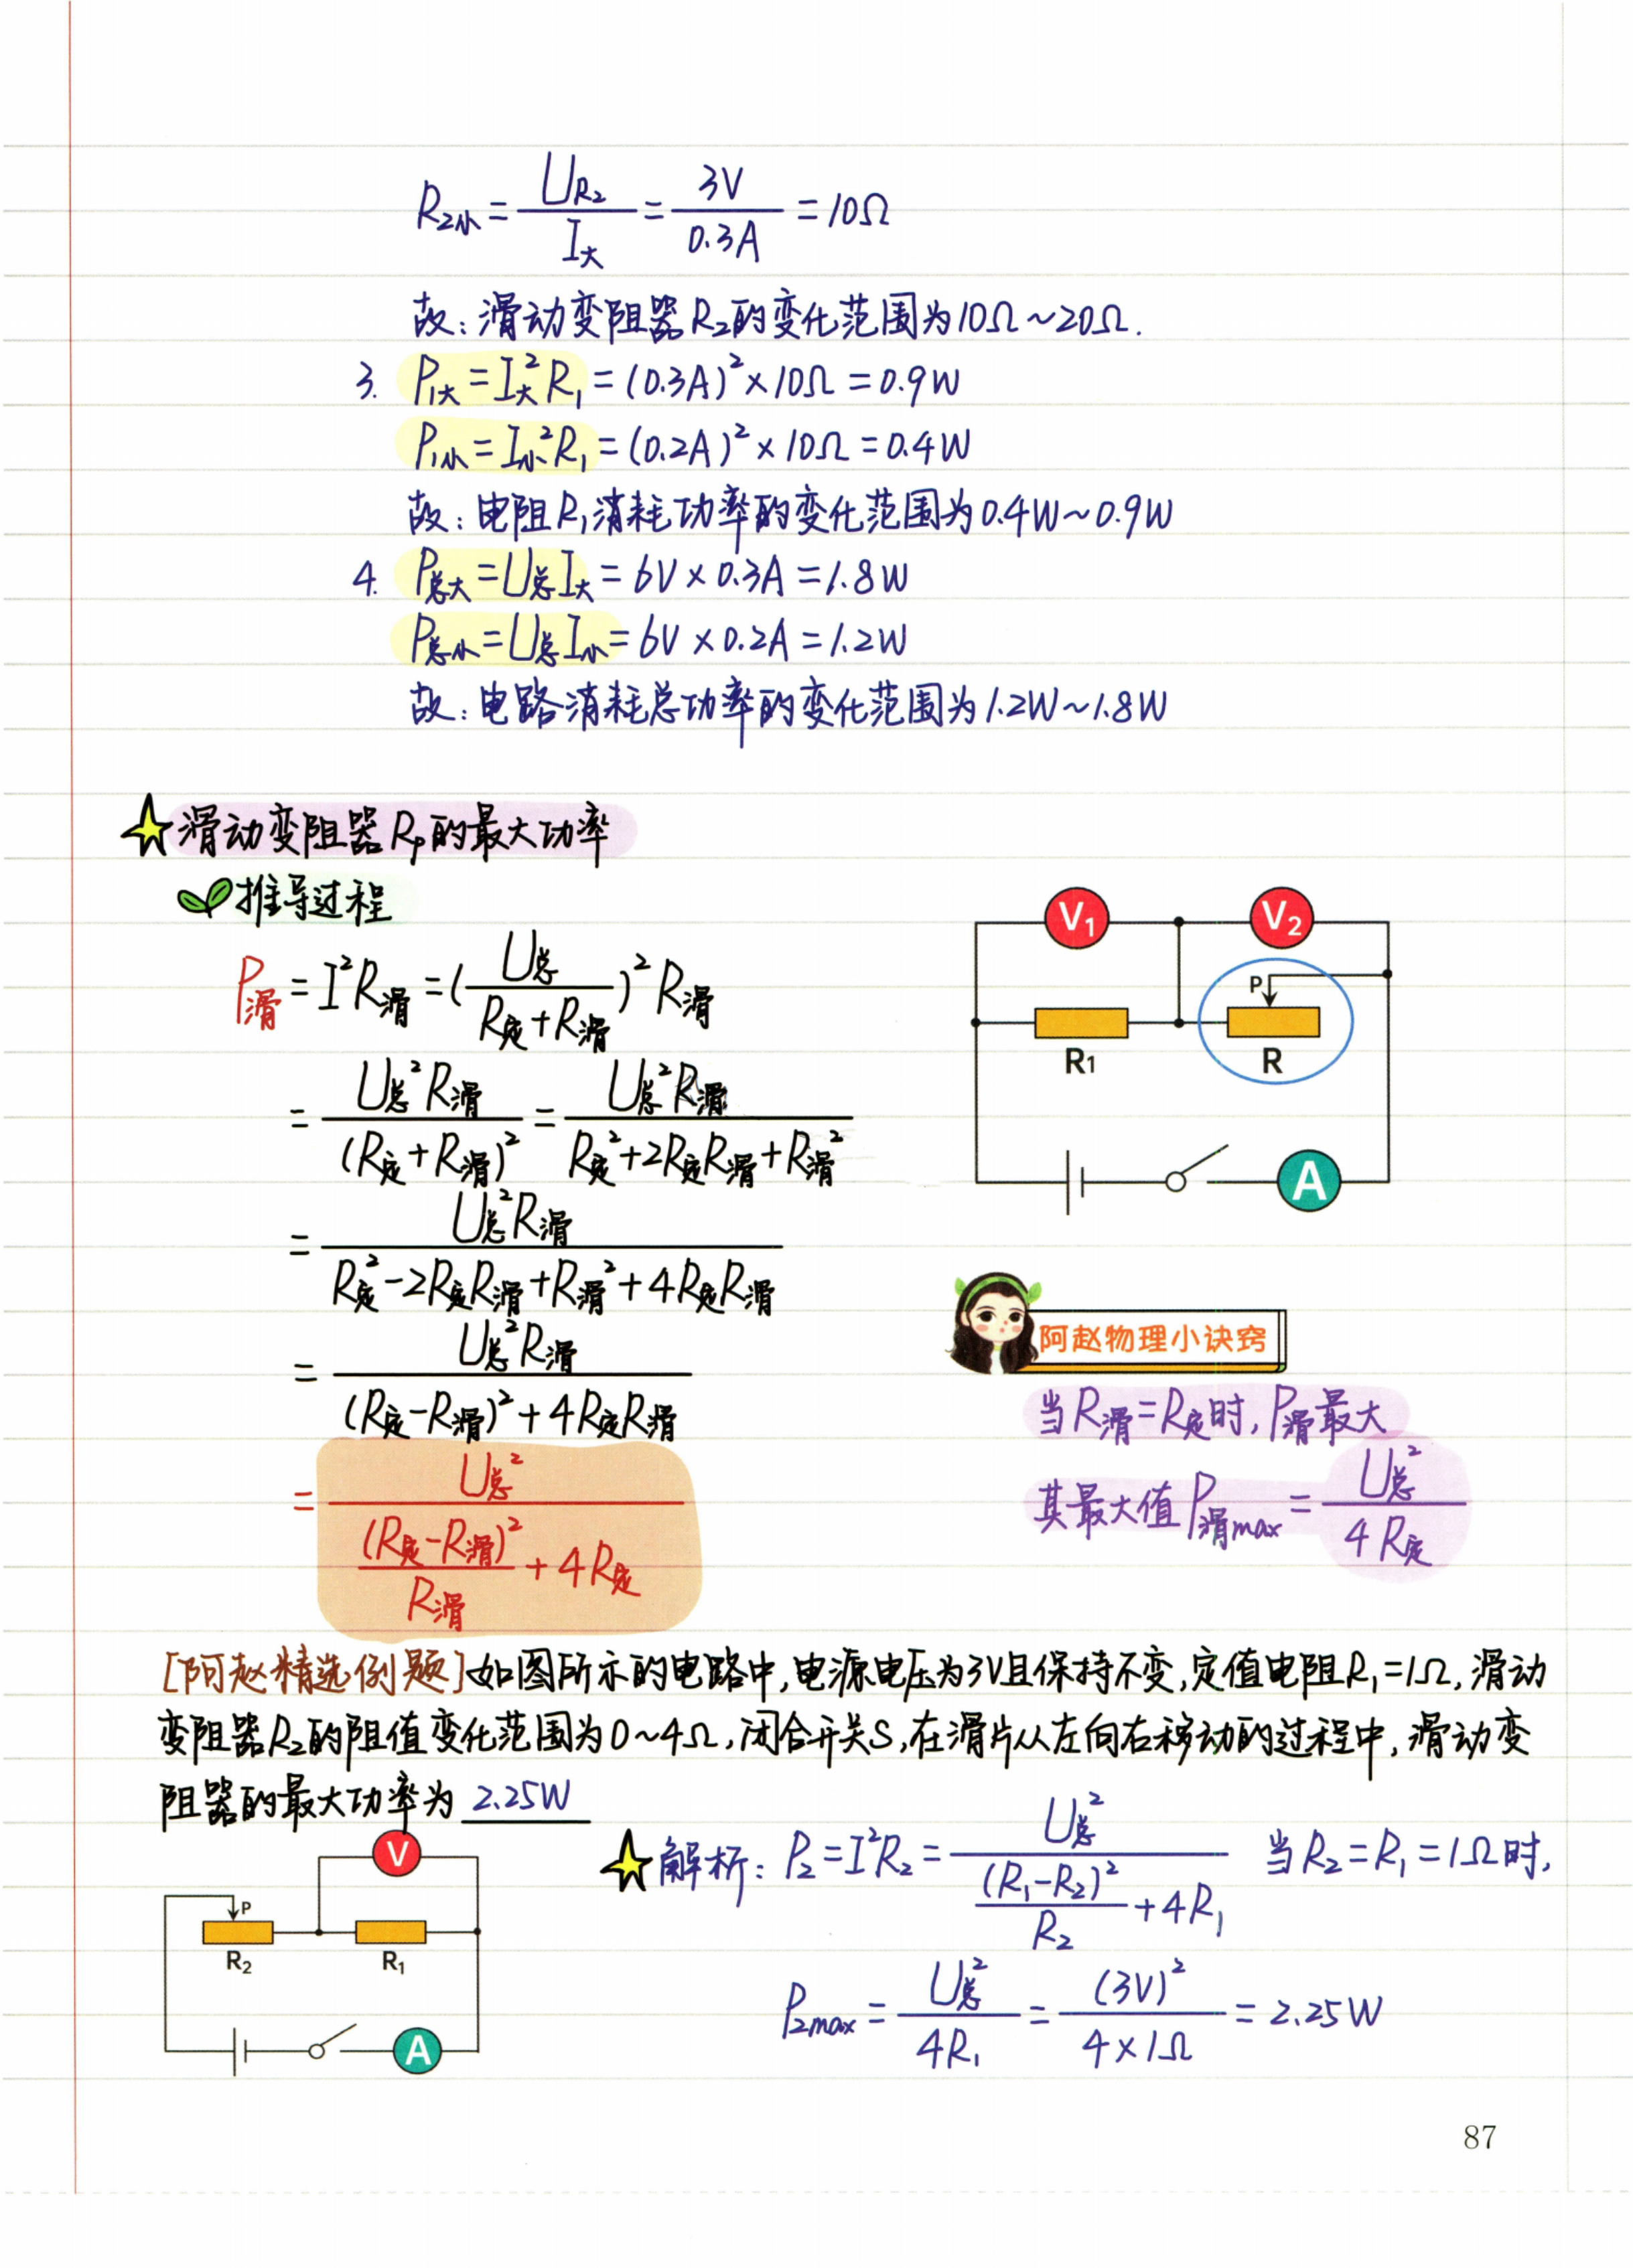 R₂小 = U_R₂ / I大 = 3V / 0.3A = 10Ω
故：滑动变阻器R₂的变化范围为10Ω～20Ω.
3. P₁大 = I大²R₁ = (0.3A)² × 10Ω = 0.9W
P₁小 = I小²R₁ = (0.2A)² × 10Ω = 0.4W
故：电阻R₁消耗功率的变化范围为0.4W～0.9W
4. P总大 = U总I大 = 6V × 0.3A = 1.8W
P总小 = U总I小 = 6V × 0.2A = 1.2W
故：电路消耗总功率的变化范围为1.2W～1.8W
滑动变阻器Rₚ的最大功率
推导过程
P滑 = I²R滑 = (U总 / (R定+R滑))² R滑
= U总²R滑 / (R定+R滑)² = U总²R滑 / (R定²+2R定R滑+R滑²)
= U总²R滑 / (R定²-2R定R滑+R滑²+4R定R滑)
= U总²R滑 / ((R定-R滑)²+4R定R滑)
= U总² / ((R定-R滑)²/R滑 + 4R定)
V₁ V₂
P
R₁ R
A
阿赵物理小诀窍
当R滑=R定时,P滑最大
其最大值P滑max = U总² / 4R定
[阿赵精选例题]如图所示的电路中,电源电压为3V且保持不变,定值电阻R₁=1Ω,滑动
变阻器R₂的阻值变化范围为0～4Ω,闭合开关S,在滑片从左向右移动的过程中,滑动变
阻器的最大功率为 2.25W
V
P
R₂ R₁
A
解析：P₂ = I²R₂ = U总² / ((R₁-R₂)²/R₂ + 4R₁) 当R₂=R₁=1Ω时,
P₂max = U总² / 4R₁ = (3V)² / (4×1Ω) = 2.25W
87